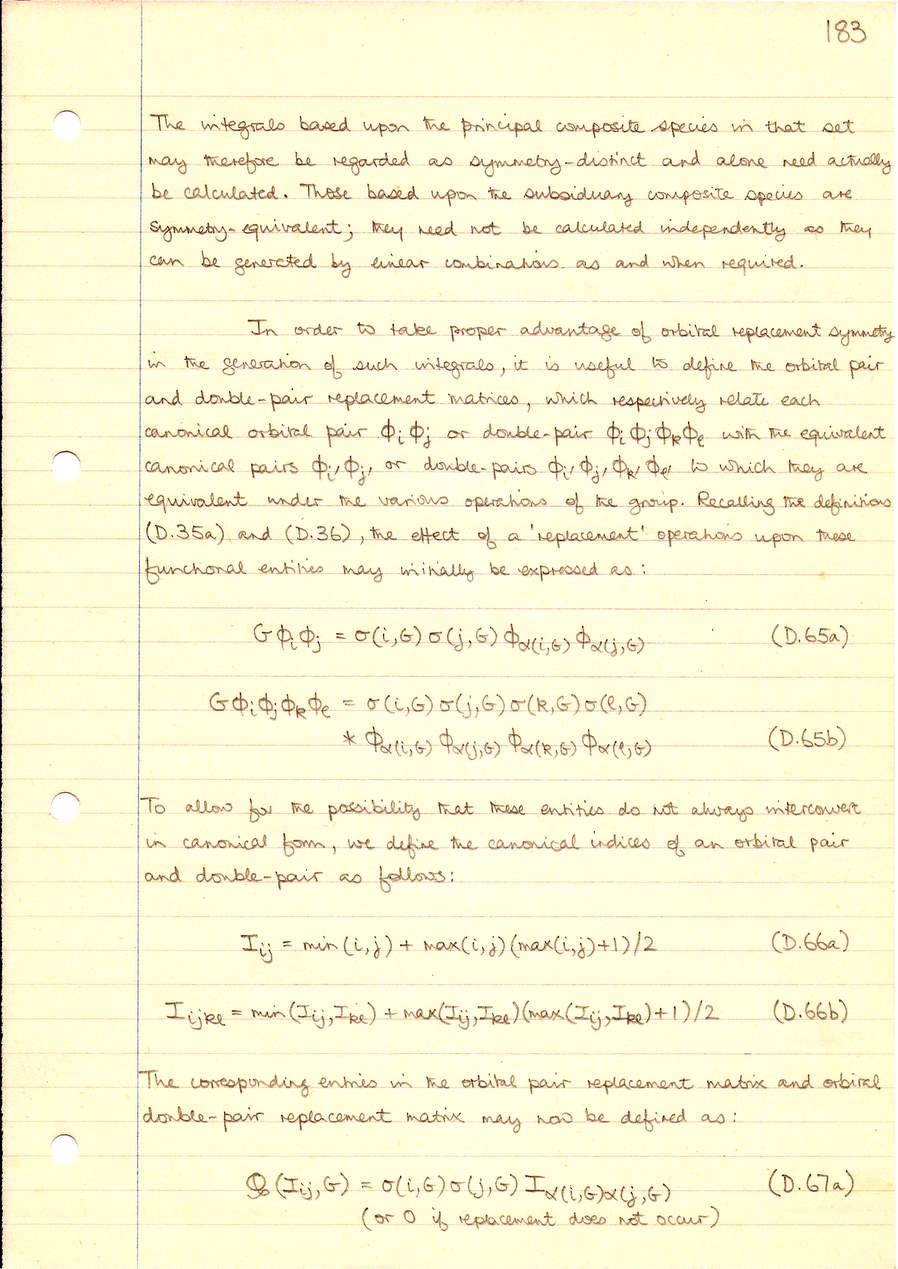 183
The integrals based upon the principal composite species in that set
may therefore be regarded as symmetry-distinct and alone need actually
be calculated. Those based upon the subsiduary composite species are
symmetry-equivalent; they need not be calculated independently as they
can be generated by linear combinations as and when required.
In order to take proper advantage of orbital replacement symmetry
in the generation of such integrals, it is useful to define the orbital pair
and double-pair replacement matrices, which respectively relate each
canonical orbital pair ϕᵢϕⱼ or double-pair ϕᵢϕⱼϕₖϕℓ with the equivalent
canonical pairs ϕᵢ′ϕⱼ′ or double-pairs ϕᵢ′ϕⱼ′ϕₖ′ϕℓ′ to which they are
equivalent under the various operations of the group. Recalling the definitions
(D.35a) and (D.36), the effect of a 'replacement' operations upon these
functional entities may initially be expressed as:
Gϕᵢϕⱼ = σ(i,G)σ(j,G)ϕα(i,G)ϕα(j,G) (D.65a)
Gϕᵢϕⱼϕₖϕℓ = σ(i,G)σ(j,G)σ(k,G)σ(ℓ,G)
* ϕα(i,G)ϕα(j,G)ϕα(k,G)ϕα(ℓ,G) (D.65b)
To allow for the possibility that these entities do not always interconvert
in canonical form, we define the canonical indices of an orbital pair
and double-pair as follows:
Iij = min(i,j) + max(i,j)(max(i,j)+1)/2 (D.66a)
Iijkℓ = min(Iij,Ikℓ) + max(Iij,Ikℓ)(max(Iij,Ikℓ)+1)/2 (D.66b)
The corresponding entries in the orbital pair replacement matrix and orbital
double-pair replacement matrix may now be defined as:
(Iij,G) = σ(i,G)σ(j,G)Iα(i,G)α(j,G) (D.67a)
(or 0 if replacement does not occur)